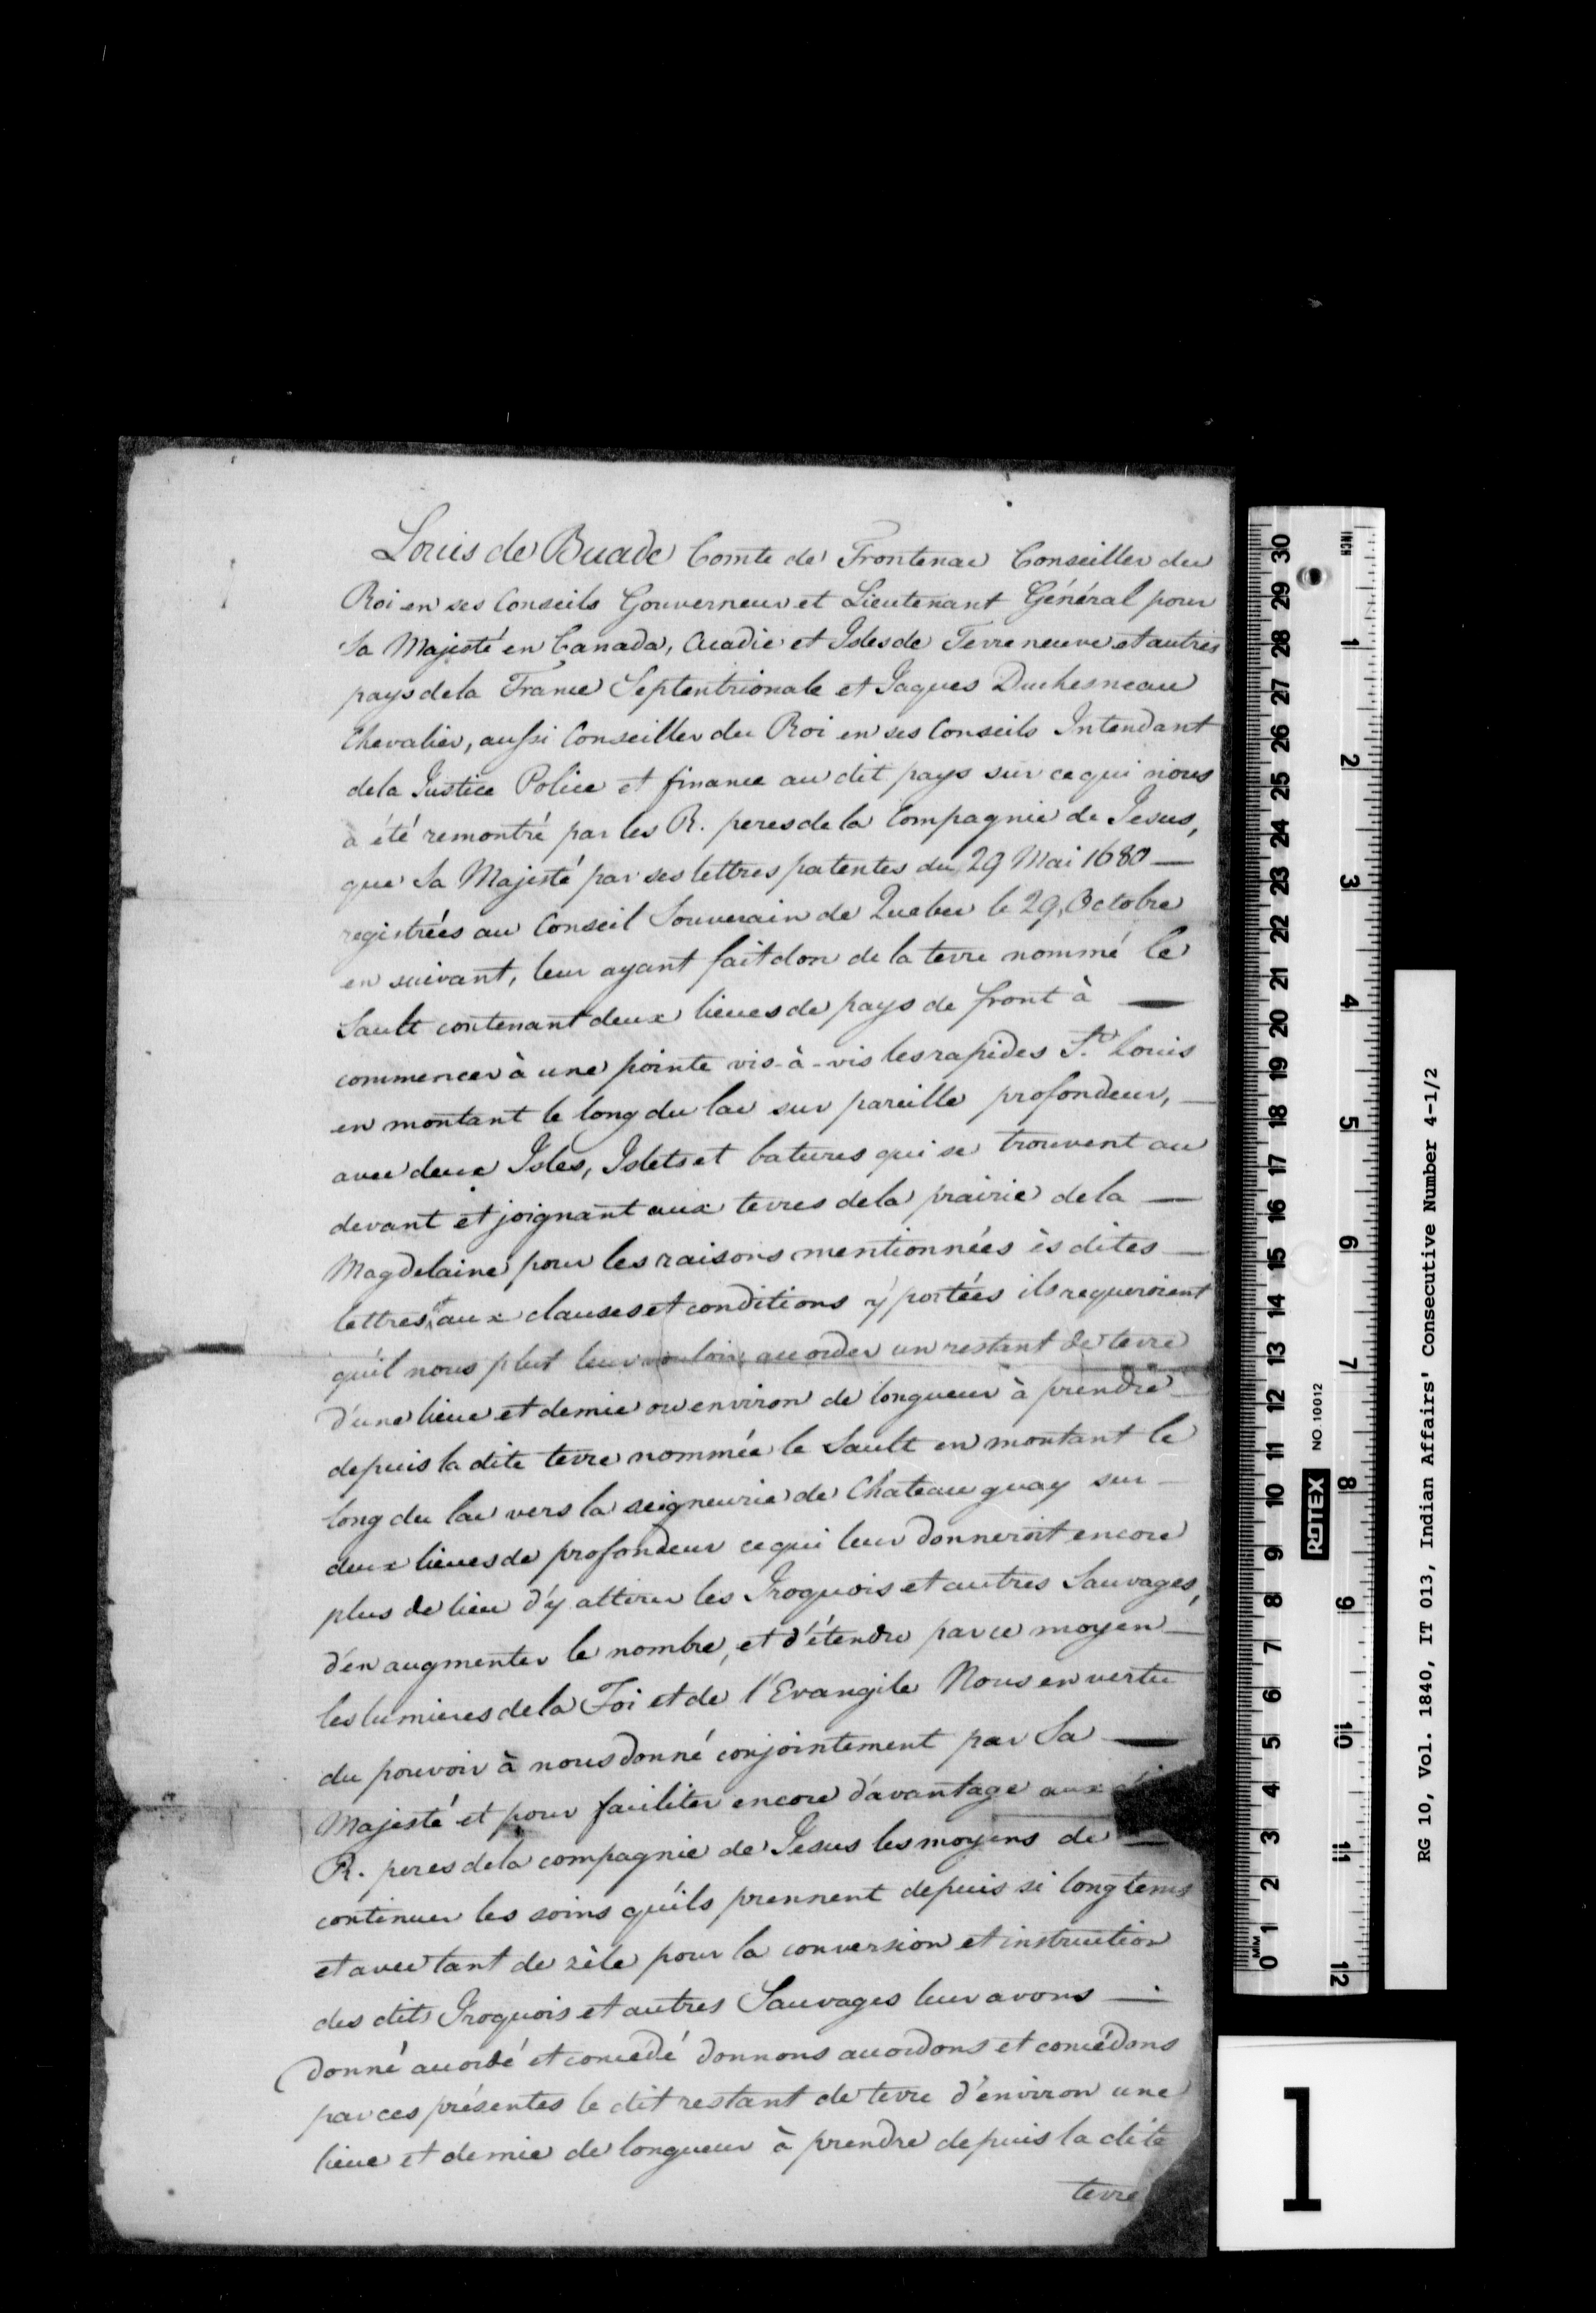 Louis de Buade Comte de Frontenac Conseiller du
Roi en ses Conseils Gouverneur et Lieutenant Général pour
Sa Majesté en Canada, Acadie et Isles de Terre neuve et autres
pays de la France Septentrionale et Jaques Duchesneau
Chevalier, aussi Conseiller du Roi en ses Conseils Intendant
de la Justice Police et finance au dit pays sur ce qui nous
a été remontré par les R. peres de la Compagnie de Jesus,
que Sa Majesté par ses lettres patentes du 29 Mai 1680 —
registrées au Conseil Souverain de Quebec le 29, Octobre
en suivant, leur ayant fait don de la terre nommé le
Sault contenant deux lieues de pays de front à —
commencer à une pointe vis-à-vis les rapides St. Louis
en montant le long du lac sur pareille profondeur, —
avec deux Isles, Islets et batures qui se trouvent au
devant et joignant aux terres de la prairie de la —
Magdelaine pour les raisons mentionnées ès dites —
lettres et aux clauses et conditions y portées ils requeroient
qu'il nous plut leur vouloir accorder un restant de terre
d'une lieue et demie ou environ de longueur à prendre
depuis la dite terre nommée le Sault en montant le
long du lac vers la seigneurie de Chateauguay sur —
deux lieues de profondeur ce qui leur donneroit encore
plus de lieu d'y attirer les Iroquois et autres Sauvages,
d'en augmenter le nombre, et d'étendre par ce moyen —
les lumieres de la Foi et de l'Evangile Nous en vertu
du pouvoir à nous donné conjointement par Sa —
Majesté et pour faciliter encore d'avantage aux
R. peres de la compagnie de Jesus les moyens de —
continuer les soins qu'ils prennent depuis si longtems
et avec tant de zèle pour la conversion et instruction
des dits Iroquois et autres Sauvages leur avons —
donné accordé et concédé donnons accordons et concédons
par ces présentes le dit restant de terre d'environ une
lieue et demie de longueur à prendre depuis la dite
terre
INCH 1 2 3 4 5 6 7 8 9 10 11 12
30 29 28 27 26 25 24 23 22 21 20 19 18 17 16 15 14 13 12 11 10 9 8 7 6 5 4 3 2 1 0 MM
ROTEX NO. 10012
RG 10, Vol. 1840, IT 013, Indian Affairs' Consecutive Number 4-1/2
1